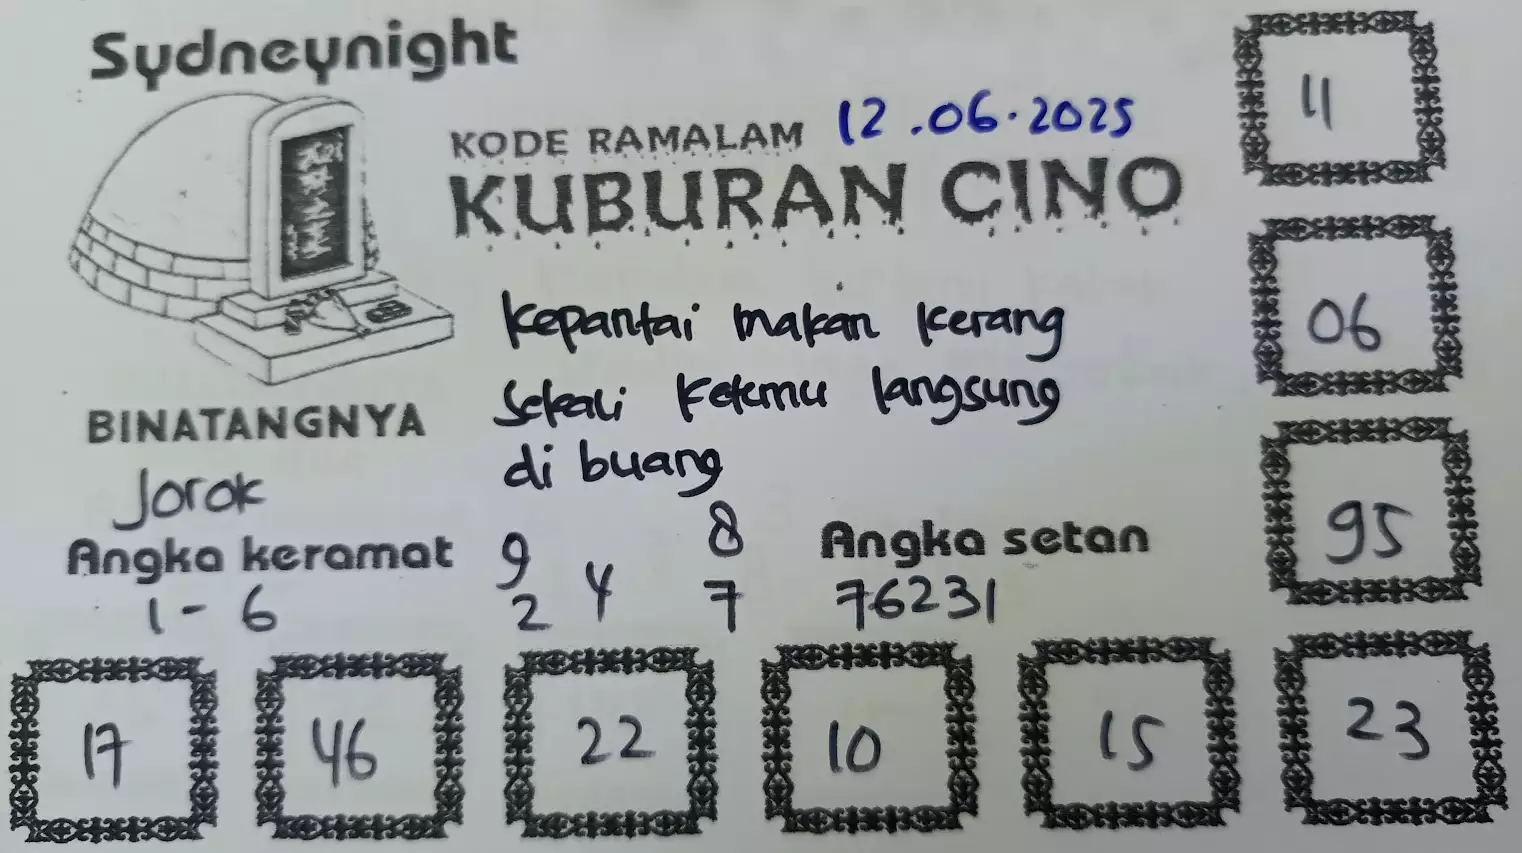 Sydneynight
KODE RAMALAM 12.06.2025
KUBURAN CINO
11
06
95
kepantai makan kerang
sekali ketemu langsung
di buang
BINATANGNYA
Jorok
Angka keramat
1-6
9 8
2 4 7
Angka setan
76231
17 46 22 10 15 23